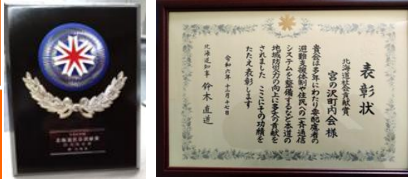 表彰状
北海道社会貢献賞
宮の沢町内会様
貴会は多年にわたり要配慮者の
避難支援体制や住民への一斉通信
システムを整備するなど本道の
地域防災力の向上に多大な貢献を
されました ここにその功績を
たたえ表彰します
令和六年十二月十七日
北海道知事 鈴木直道